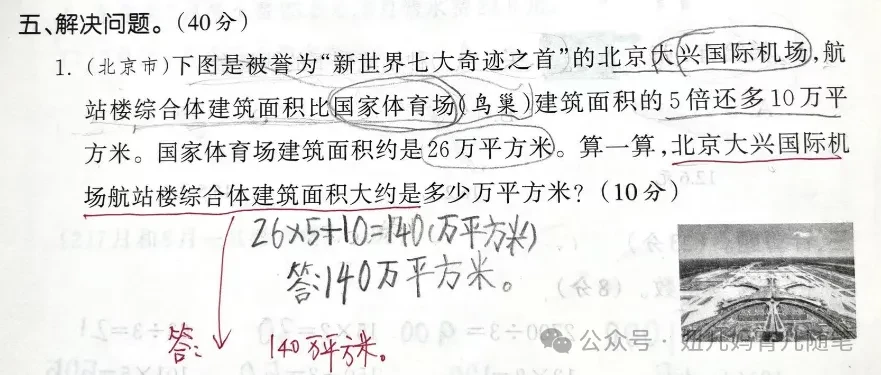 五、解决问题。(40分)
1. (北京市)下图是被誉为“新世界七大奇迹之首”的北京大兴国际机场,航
站楼综合体建筑面积比国家体育场(鸟巢)建筑面积的5倍还多10万平
方米。国家体育场建筑面积约是26万平方米。算一算,北京大兴国际机
场航站楼综合体建筑面积大约是多少万平方米?(10分)
26×5+10=140(万平方米)
答:140万平方米。
答: 140万平方米。
公众号·妞儿妈育儿随笔